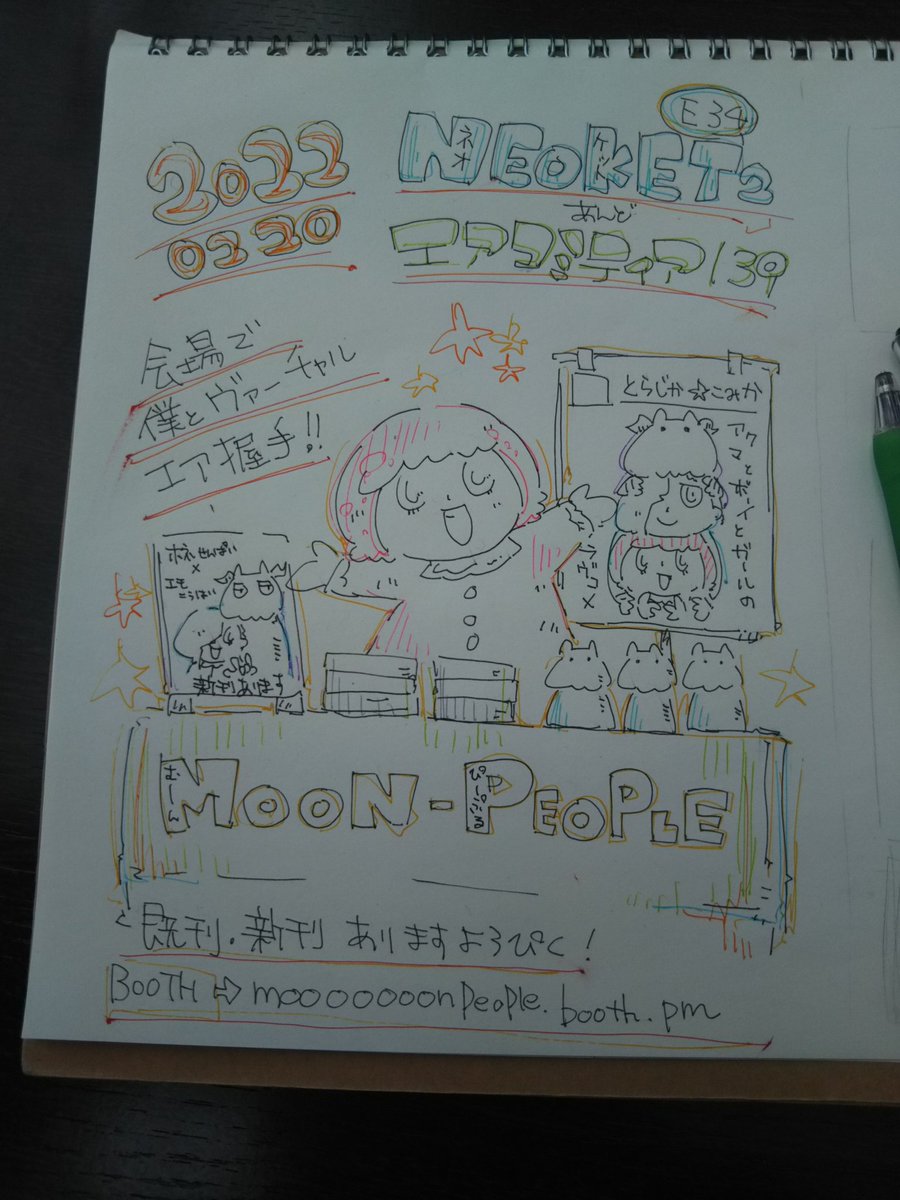 2022
02 20
E34
NEOKET2
ネオ
ケット
あんど
エアコミティア139
会場で
僕とヴァーチャル
エア握手!!
とらじか☆こみか
アクマとボーイとガールの
ボネせんぱい
×
エモ
新刊あります
MOON-PEOPLE
むーん
ぴーぷる
既刊・新刊 ありますよろぴく!
BOOTH ⇨ moooooooonpeople.booth.pm